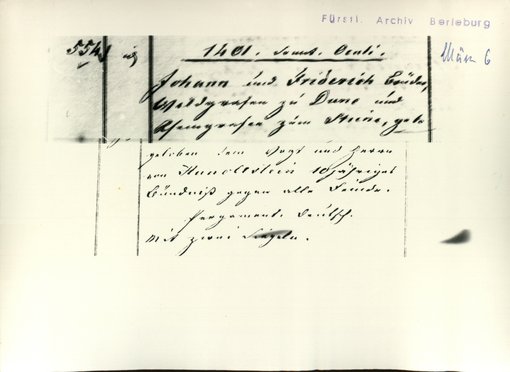 Fürstl. Archiv Berleburg
März 6
554
1401. Sonnt. Oculi.
Johann und Friderich Brüder,
Wildgrafen zu Dune und
Rheingrafen zum Steine, gelo
geloben dem Vogt und Herrn
von Hunoltstein 10jähriges
Bündniß gegen alle Feinde.
Pergament. Deutsch.
Mit zwei Siegeln.